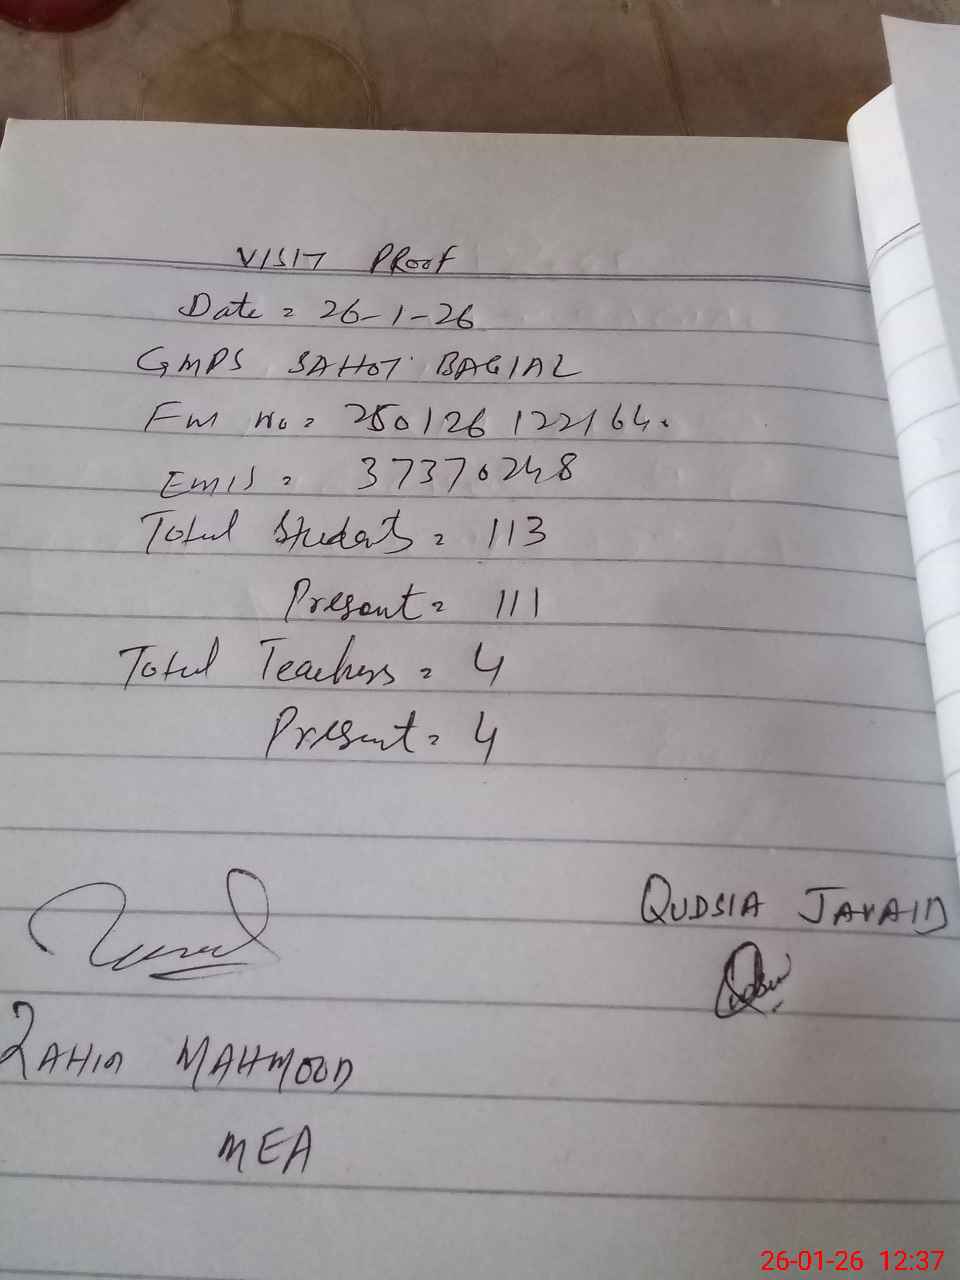 VISIT PROOF
Date = 26-1-26
GMPS SAHOT BAGIAL
Fm no = 250126122164.
Emis = 37370248
Total Students = 113
Present = 111
Total Teachers = 4
Present = 4
QUDSIA JAVAID
MAHMOOD
MEA
26-01-26 12:37